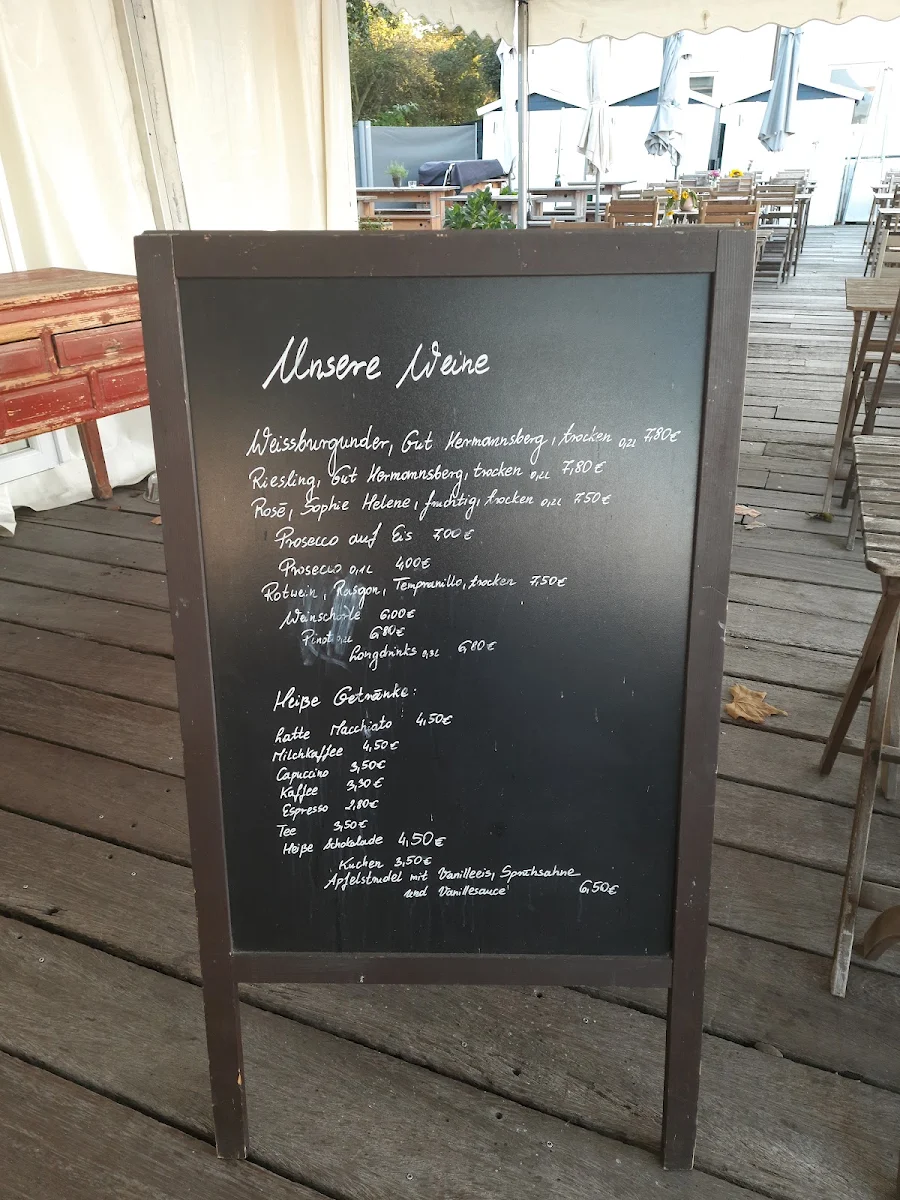 Unsere Weine
Weissburgunder, Gut Hermannsberg, trocken 0,2L 7,80€
Riesling, Gut Hermannsberg, trocken 0,2L 7,80€
Rosé, Sophie Helene, fruchtig, trocken 0,2L 7,50€
Prosecco auf Eis 7,00€
Prosecco 0,1L 4,00€
Rotwein, Rasgon, Tempranillo, trocken 7,50€
Weinschorle 6,00€
Pinot 0,2L 6,80€
Longdrinks 0,3L 6,80€
Heiße Getränke:
Latte Macchiato 4,50€
Milchkaffee 4,50€
Capuccino 3,50€
Kaffee 3,30€
Espresso 2,80€
Tee 3,50€
Heiße Schokolade 4,50€
Kuchen 3,50€
Apfelstrudel mit Vanilleeis, Sprühsahne
und Vanillesauce 6,50€